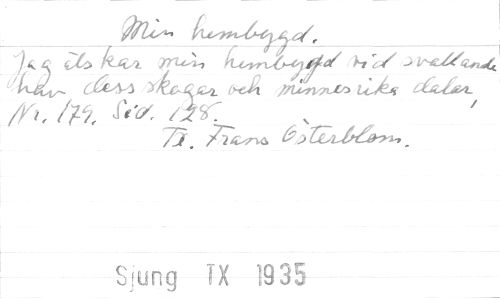 Min hembygd.
Jag älskar min hembygd vid svallande
hav dess skogar och minnesrika dalar,
Nr. 179. Sid. 198.
Tx. Frans Österblom.
Sjung TX 1935